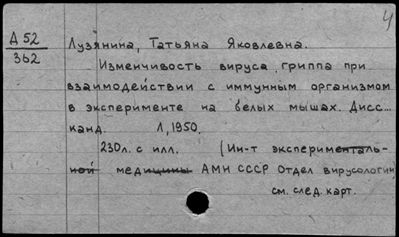 4
А 52
362
Лузянина, Татьяна Яковлевна.
Изменчивость вируса гриппа при
взаимодействии с иммунным организмом
в эксперименте на белых мышах. Дисс...
канд Л, 1950.
230л. с илл. (Ин-т эксперименталь-
ной медицины АМН СССР Отдел вирусологии
см. след. карт.